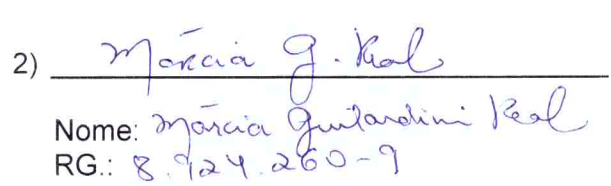 2) Márcia G. Real
Nome: Márcia Guilardini Real
RG.: 8.924.260-9